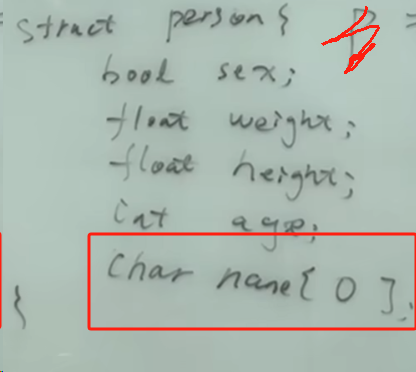 struct person{
bool sex;
float weight;
float height;
int age;
char name[ 0 ];
{